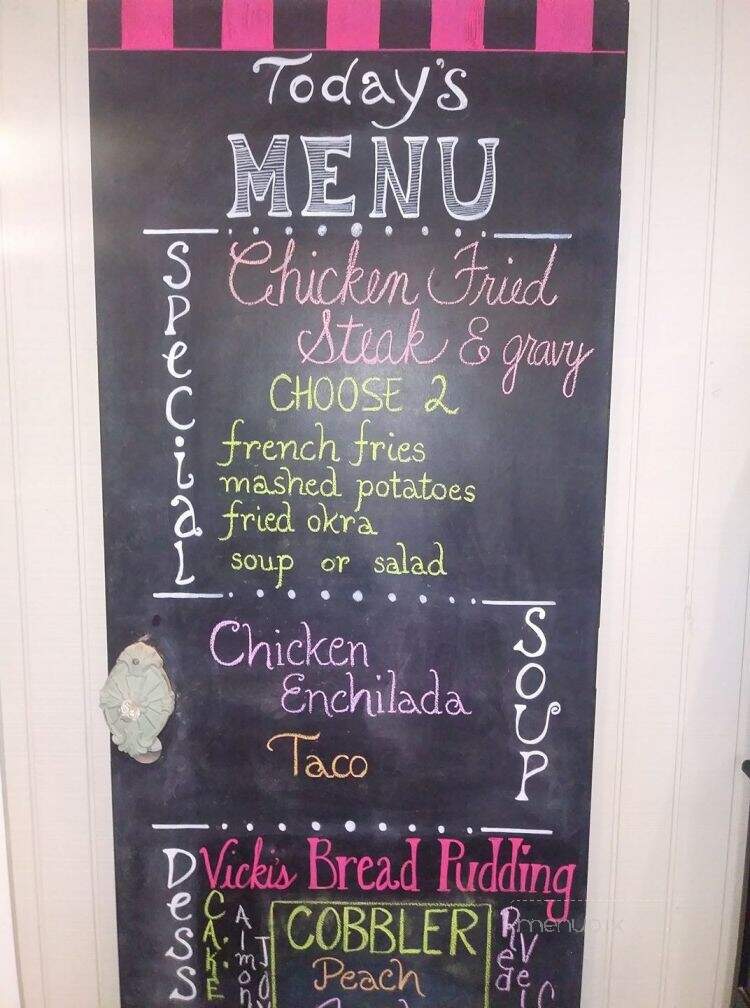 Today's
MENU
Special
Chicken Fried
Steak & gravy
CHOOSE 2
french fries
mashed potatoes
fried okra
soup or salad
SOUP
Chicken
Enchilada
Taco
Dess
Vicki's Bread Pudding
CAKE
Almon
Joy
COBBLER
Peach
Red
Vel
menupix